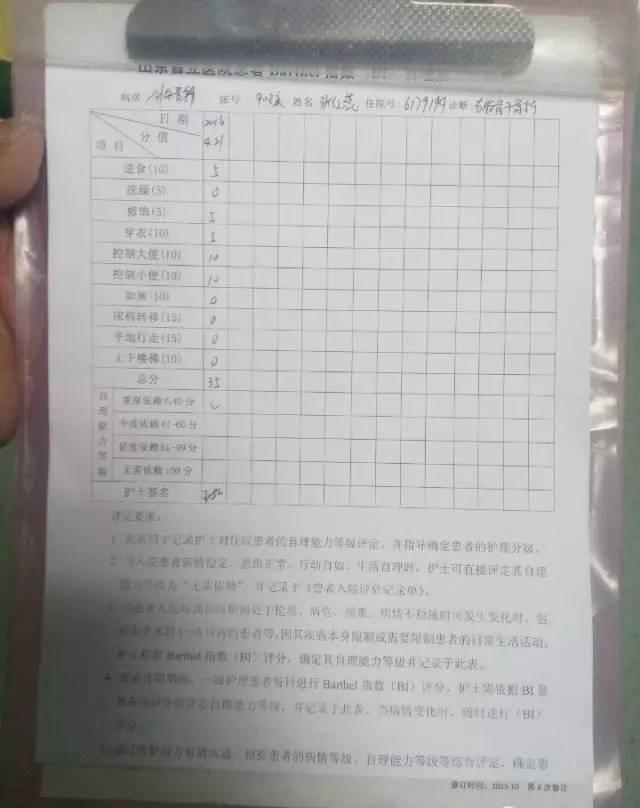 山东省立医院患者 Barthel 指数（BI）
病房 创伤骨科 床号: 903床 姓名 住院号: 诊断
日期 2016
项目 分值 4.21
进食(10) 5
洗澡(5) 0
修饰(5) 5
穿衣(10) 5
控制大便(10) 10
控制小便(10) 10
如厕(10) 0
床椅转移(15) 0
平地行走(15) 0
上下楼梯(10) 0
总分 35
自理能力等级
重度依赖≤40分 ✓
中度依赖 41-60分
轻度依赖 61-99分
无需依赖 100分
护士签名
评定要求:
1. 此表用于记录护士对住院患者的自理能力等级评定，并指导确定患者的护理分级。
2. 当入院患者病情稳定、思维正常、行动自如、生活自理时，护士可直接评定其自理
能力等级为“无需依赖”，并记录于《患者入院评估记录单》。
3. 当患者入院时或住院期间处于抢救、病危、病重、病情不稳随时可发生变化时，包
括大手术后1-3日内的患者等，因其疾病本身限制或需要限制患者的日常生活活动，
护士根据 Barthel 指数（BI）评分，确定其自理能力等级并记录于此表。
4. 患者住院期间，一级护理患者每日进行 Barthel 指数（BI）评分，护士需依据 BI 量
表各项评分值评定自理能力等级，并记录于此表。当病情变化时，随时进行（BI）
评分。
5. 通过医护双方有效沟通，根据患者的病情等级、自理能力等级等综合评定，确定患
修订时间: 2015.10 第4次修订